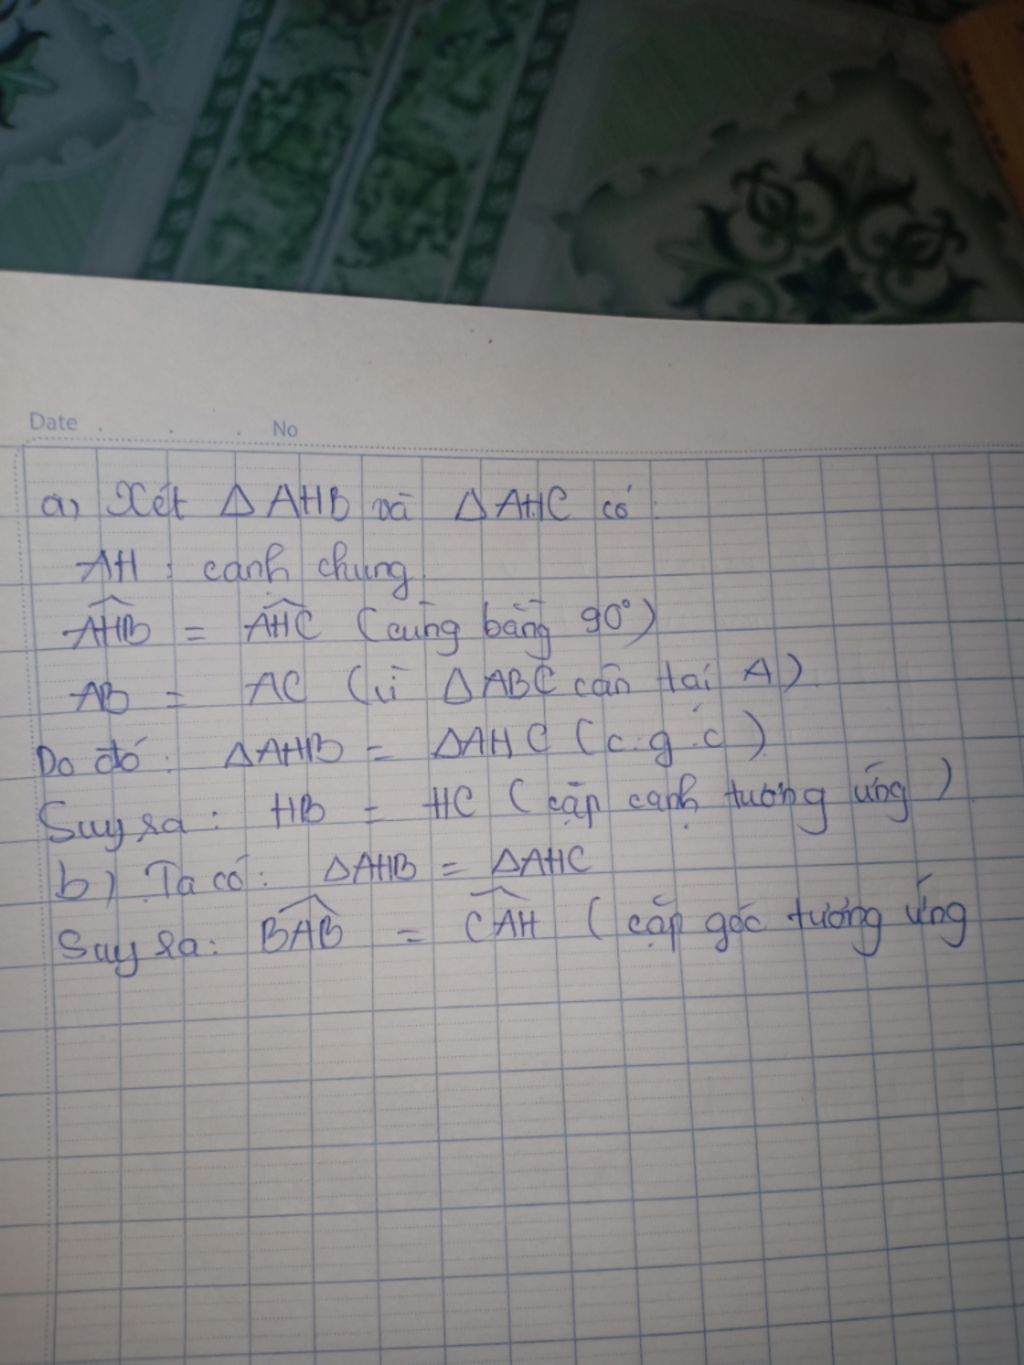 Date . . . No
a) Xét △AHB và △AHC có:
AH: cạnh chung
\widehat{AHB} = \widehat{AHC} (cùng bằng 90°)
AB = AC (vì △ABC cân tại A)
Do đó: △AHB = △AHC (c.g.c)
Suy ra: HB = HC (cặp cạnh tương ứng)
b) Ta có: △AHB = △AHC
Suy ra: \widehat{BAB} = \widehat{CAH} (cặp góc tương ứng